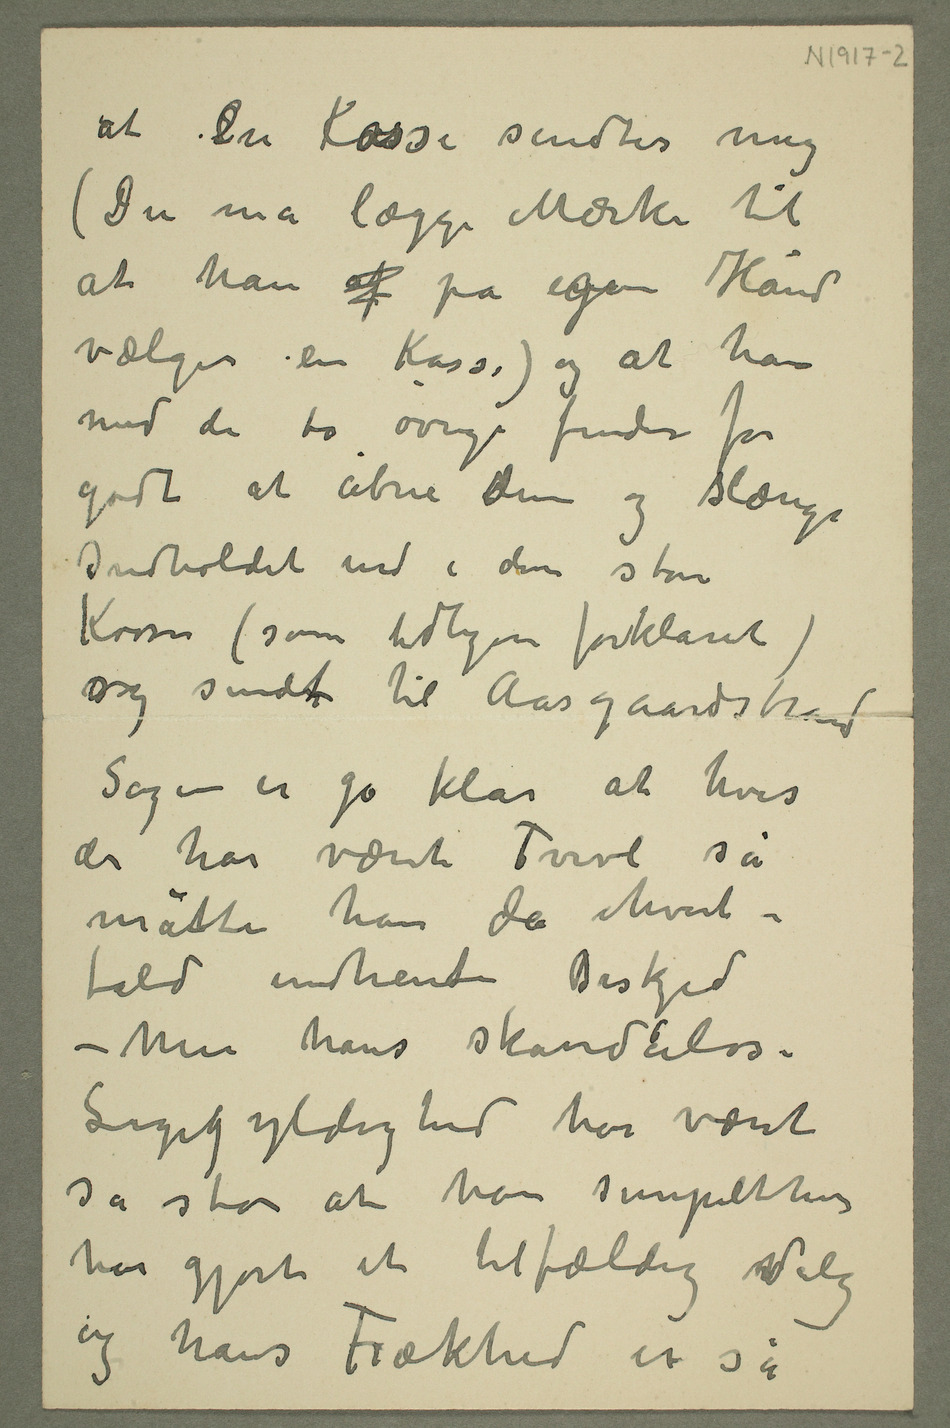 N1917-2
at En Kasse sendtes mig
(Du må lægge Mærke til
at han af på egen Hånd
vælger en Kasse) og at han
med de to övrige finder for
godt at åbne dem og slænge
Indholdet ned i den store
Kasse (som tidligere forklaret)
og sendt til Aasgaardstrand
Sagen er jo klar at hvis
der har været Tvivl så
måtte han da ihvert-
fald indhente Beskjed
– Men hans skandaløse
Ligegyldighed har været
så stor at han simpelthen
har gjort et tilfældig Valg
og hans Frækhed er så